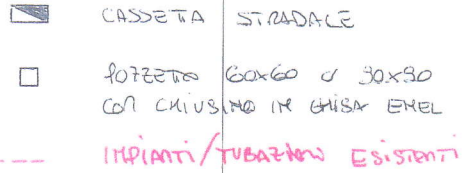 CASSETTA STRADALE
POZZETTO 60x60 o 90x90
CON CHIUSINO IN GHISA ENEL
IMPIANTI/TUBAZIONI ESISTENTI